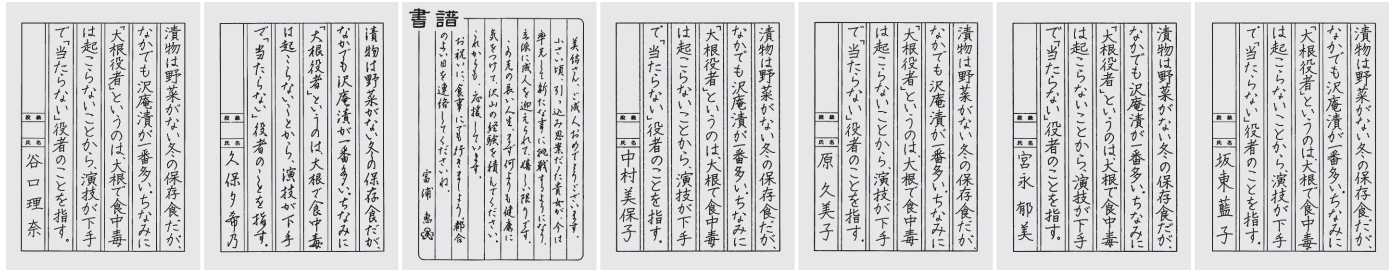 漬物は野菜がない冬の保存食だが、
なかでも沢庵漬が一番多い。ちなみに
「大根役者」というのは、大根で食中毒
は起こらないことから、演技が下手
で「当たらない」役者のことを指す。
段級
氏名
谷口理奈
漬物は野菜がない冬の保存食だが、
なかでも沢庵漬が一番多い。ちなみに
「大根役者」というのは、大根で食中毒
は起こらないことから、演技が下手
で「当たらない」役者のことを指す。
段級
氏名
久保夕希乃
書譜
美保さん、ご成人おめでとうございます。
小さい頃、引っ込み思案だった貴女が今は
率先して新たな事に挑戦するようになり、
立派に成人を迎えられて嬉しい限りです。
この先の長い人生、まず何よりも健康に
気をつけて、沢山の経験を積んでください。
これからも応援しています。
お祝いに、食事にでも行きましょう。都合
のよい日を連絡してくださいね
漬物は野菜がない冬の保存食だが、
なかでも沢庵漬が一番多い。ちなみに
「大根役者」というのは、大根で食中毒
は起こらないことから、演技が下手
で「当たらない」役者のことを指す。
段級
氏名
中村美保子
漬物は野菜がない冬の保存食だが、
なかでも沢庵漬が一番多い。ちなみに
「大根役者」というのは、大根で食中毒
は起こらないことから、演技が下手
で「当たらない」役者のことを指す。
段級
氏名
原久美子
漬物は野菜がない冬の保存食だが、
なかでも沢庵漬が一番多い。ちなみに
「大根役者」というのは、大根で食中毒
は起こらないことから、演技が下手
で「当たらない」役者のことを指す。
段級
氏名
宮永郁美
漬物は野菜がない冬の保存食だが、
なかでも沢庵漬が一番多い。ちなみに
「大根役者」というのは、大根で食中毒
は起こらないことから、演技が下手
で「当たらない」役者のことを指す。
段級
氏名
坂東藍子